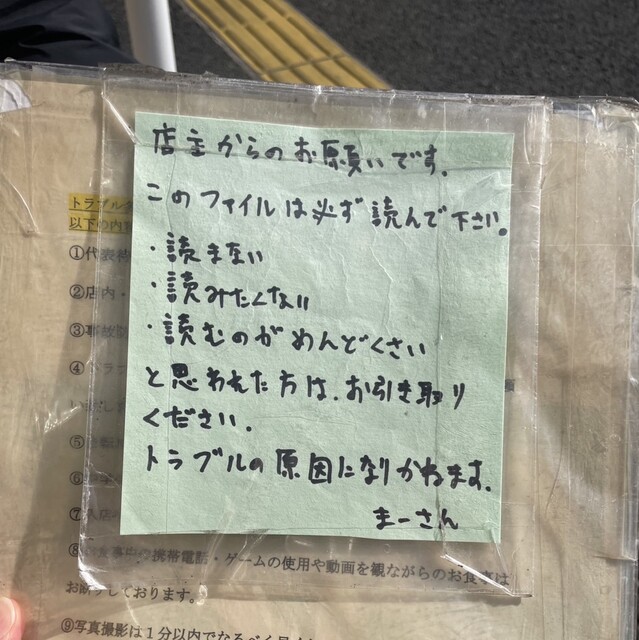 店主からのお願いです.
このファイルは必ず読んで下さい。
・読まない
・読みたくない
・読むのがめんどくさい
と思われた方は、お引き取り
ください.
トラブルの原因になりかねます.
まーさん
トラブル
以下の内
①代表待
②店内・
③事故
④トラッ
⑤自転
⑥
⑦入店
⑧お食事中の携帯電話・ゲームの使用や動画を観ながらのお食事は
お断りしております。
⑨写真撮影は1分以内で